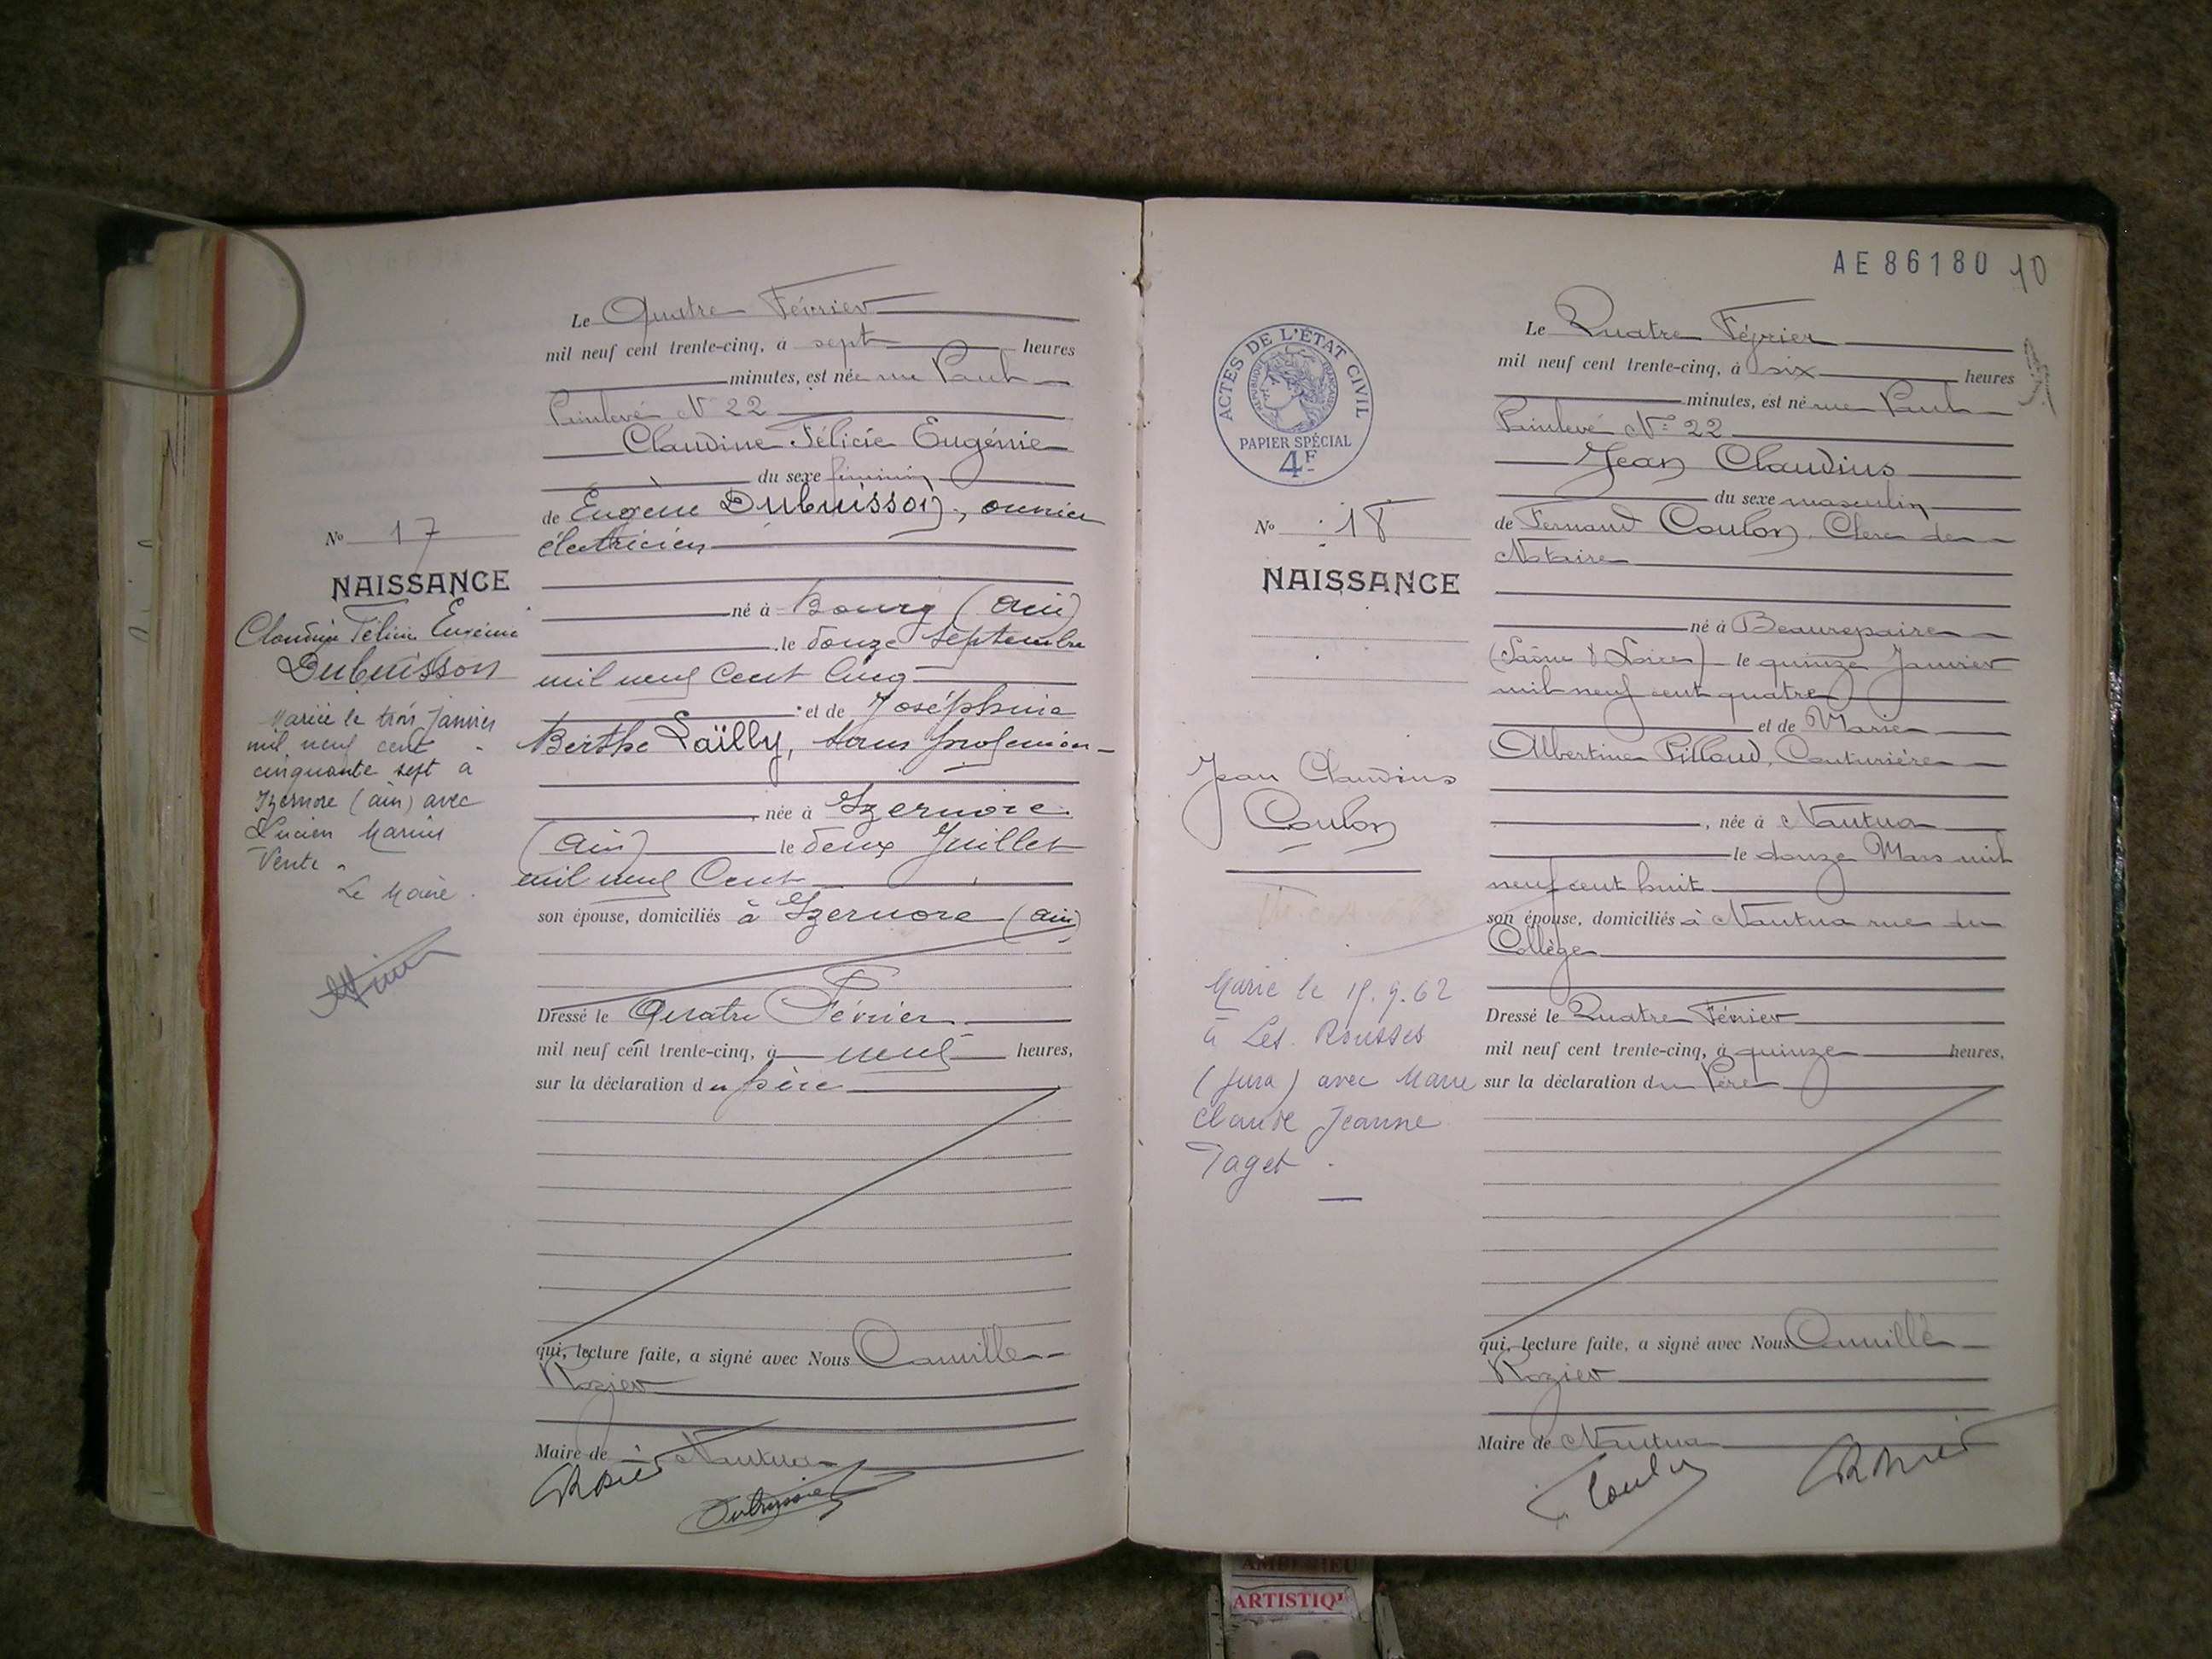 Le Quatre Février
mil neuf cent trente-cinq, à sept heures
minutes, est née rue Paul
Painlevé N° 22
Claudine Félicie Eugénie
du sexe féminin
de Eugène Dubuisson, ouvrier
électricien
né à Bourg (Ain)
le douze Septembre
mil neuf cent cinq
et de Joséphine
Berthe Laïlly, sans profession
, née à Izernore
(Ain) le deux Juillet
mil neuf Cent
son épouse, domiciliés à Izernore (Ain)
Dressé le Quatre Février
mil neuf cent trente-cinq, à neuf heures,
sur la déclaration du père
qui, lecture faite, a signé avec Nous Camille
Rozier
Maire de Nantua
Dubuisson
N° 17
NAISSANCE
Claudine Félicie Eugénie
Dubuisson
Mariée le trois Janvier
mil neuf cent
cinquante sept à
Izernore (ain) avec
Lucien Marius
Vente.
Le Maire.
AE 86180 10
ACTES DE L'ÉTAT CIVIL
RÉPUBLIQUE FRANÇAISE
PAPIER SPÉCIAL
4F
N° 18
NAISSANCE
Jean Claudius
Coulon
Marié le 15.9.62
à Les Rousses
(Jura) avec Marie
Claude Jeanne
Paget.
Le Quatre Février
mil neuf cent trente-cinq, à six heures
minutes, est né rue Paul
Painlevé N° 22
Jean Claudius
du sexe masculin
de Fernand Coulon, Clerc de
Notaire
né à Beaurepaire
(Saône & Loire) le quinze Janvier
mil neuf cent quatre
et de Marie
Albertine Pilloud, Couturière
, née à Nantua
le douze Mars mil
neuf cent huit
son épouse, domiciliés à Nantua rue du
Collège
Dressé le Quatre Février
mil neuf cent trente-cinq, à quinze heures,
sur la déclaration du Père
qui, lecture faite, a signé avec Nous Camille
Rozier
Maire de Nantua
F. Coulon
ARTISTIQ